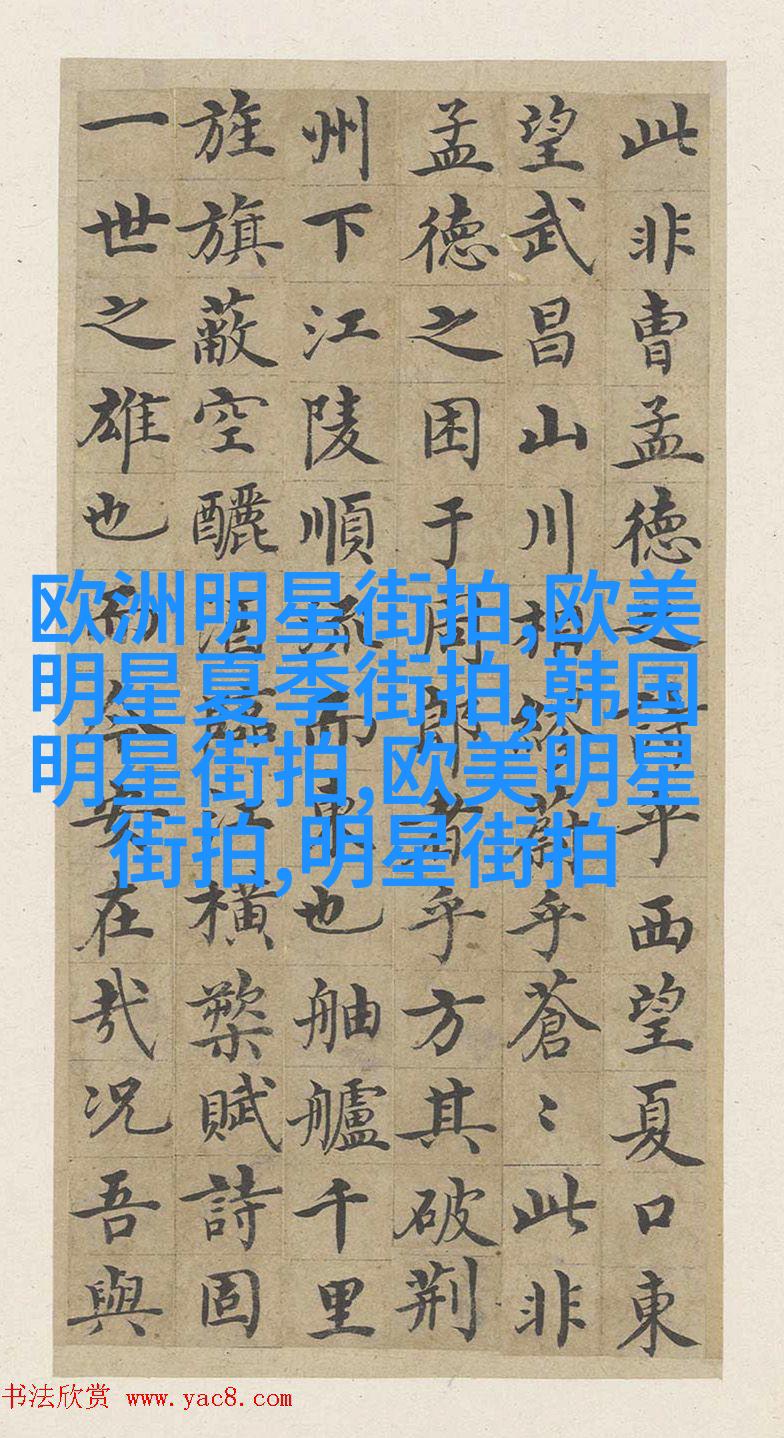 此非曹孟德之詩乎西望夏口東
望武昌山川相繆蔚乎蒼〻此非
孟德之困于周郎者乎方其破荆
州下江陵順流而東也舳艫千里
旌旗蔽空釃酒臨江橫槊賦詩固
一世之雄也而今安在哉况吾與
欧洲明星街拍,欧美
明星夏季街拍,韩国
明星街拍,欧美明星
街拍,明星街拍
书法欣赏 www.yac8.com